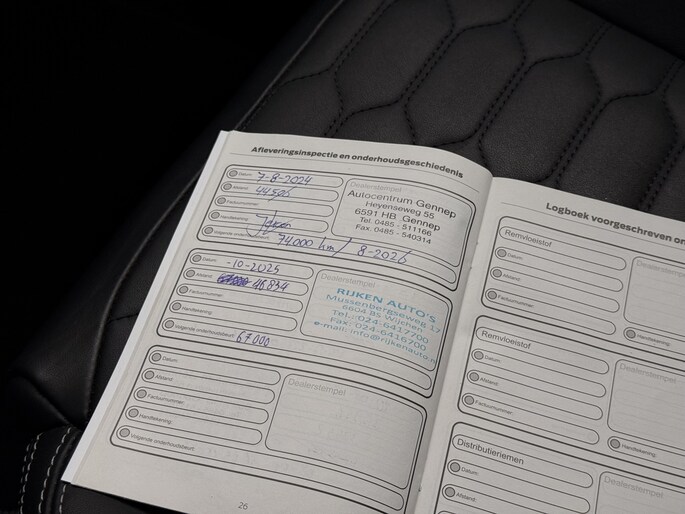 Afleveringsinspectie en onderhoudsgeschiedenis
Datum: 7-8-2024
Afstand: 44506
Factuurnummer:
Handtekening:
Volgende onderhoudsbeurt: 74000 km / 8-2026
Dealerstempel
Autocentrum Gennep
Heyenseweg 55
6591 HB Gennep
Tel. 0485 - 511166
Fax. 0485 - 540314
Datum: -10-2025
Afstand: 46834
Factuurnummer:
Handtekening:
Volgende onderhoudsbeurt: 67000
Dealerstempel
RIJKEN AUTO's
Mussenbergseweg 17
6604 BS Wijchen
Tel.: 024-6417700
Fax: 024-6416700
e-mail: info@rijkenauto.n
Datum:
Afstand:
Factuurnummer:
Handtekening:
Volgende onderhoudsbeurt:
Dealerstempel
26
Logboek voorgeschreven on
Remvloeistof
Datum:
Afstand:
Factuurnummer:
Dealerstempel
Handtekening:
Remvloeistof
Datum:
Afstand:
Factuurnummer:
Dealerstempel
Handtekening:
Distributieriemen
Datum:
Afstand:
Dealerstempel